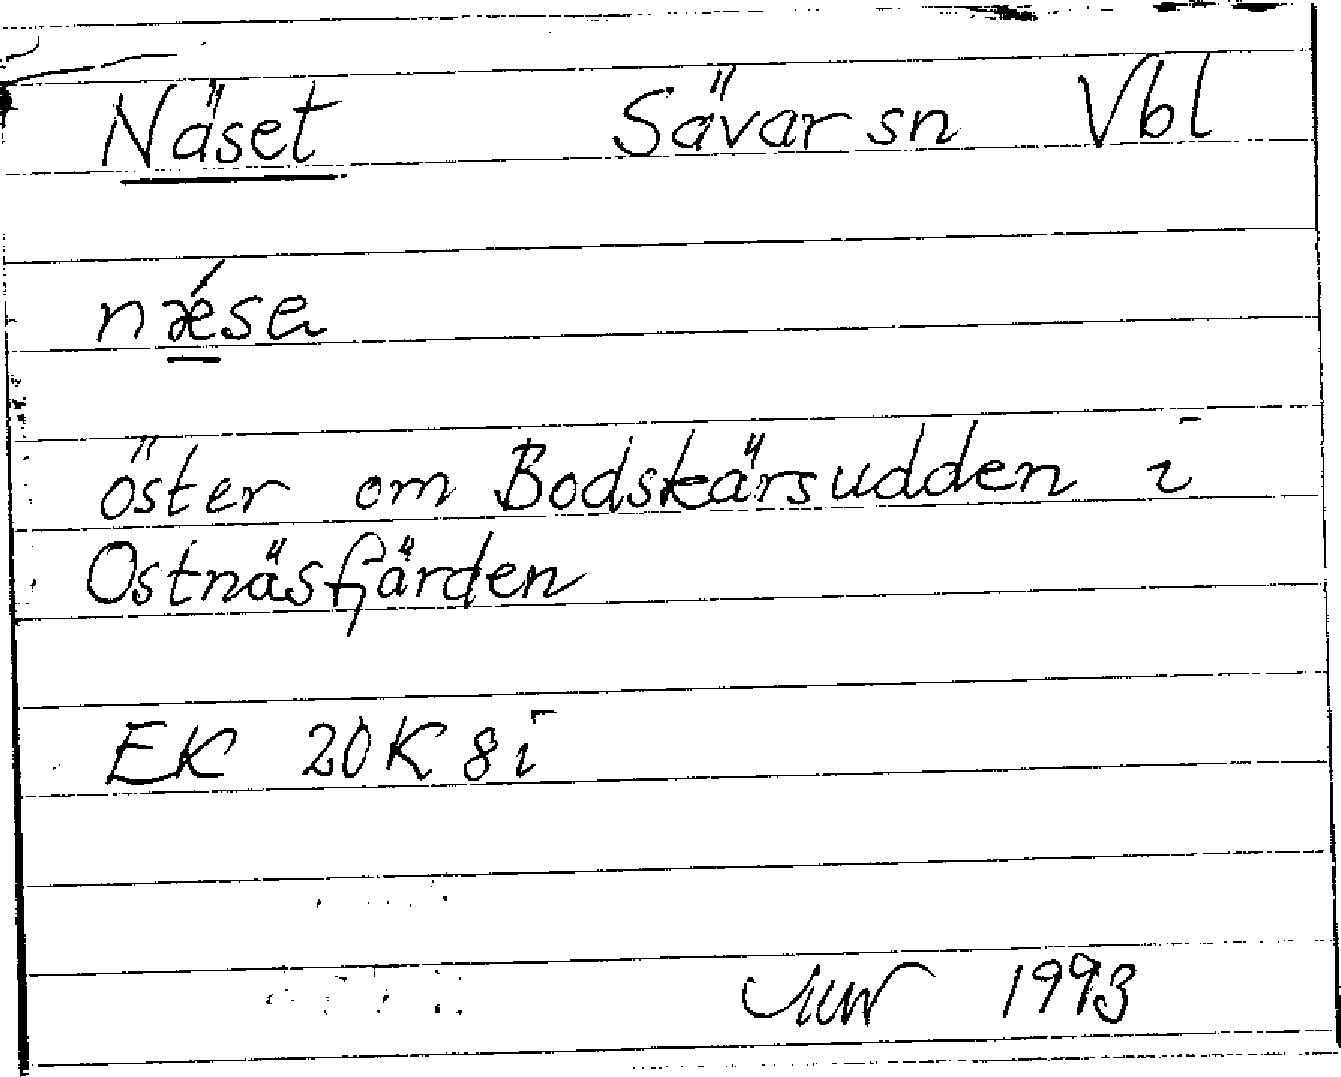 Näset Sävar sn Vbl
nǽsa
öster om Bodskärsudden i
Ostnäsfjärden
EK 20K 8i
1993